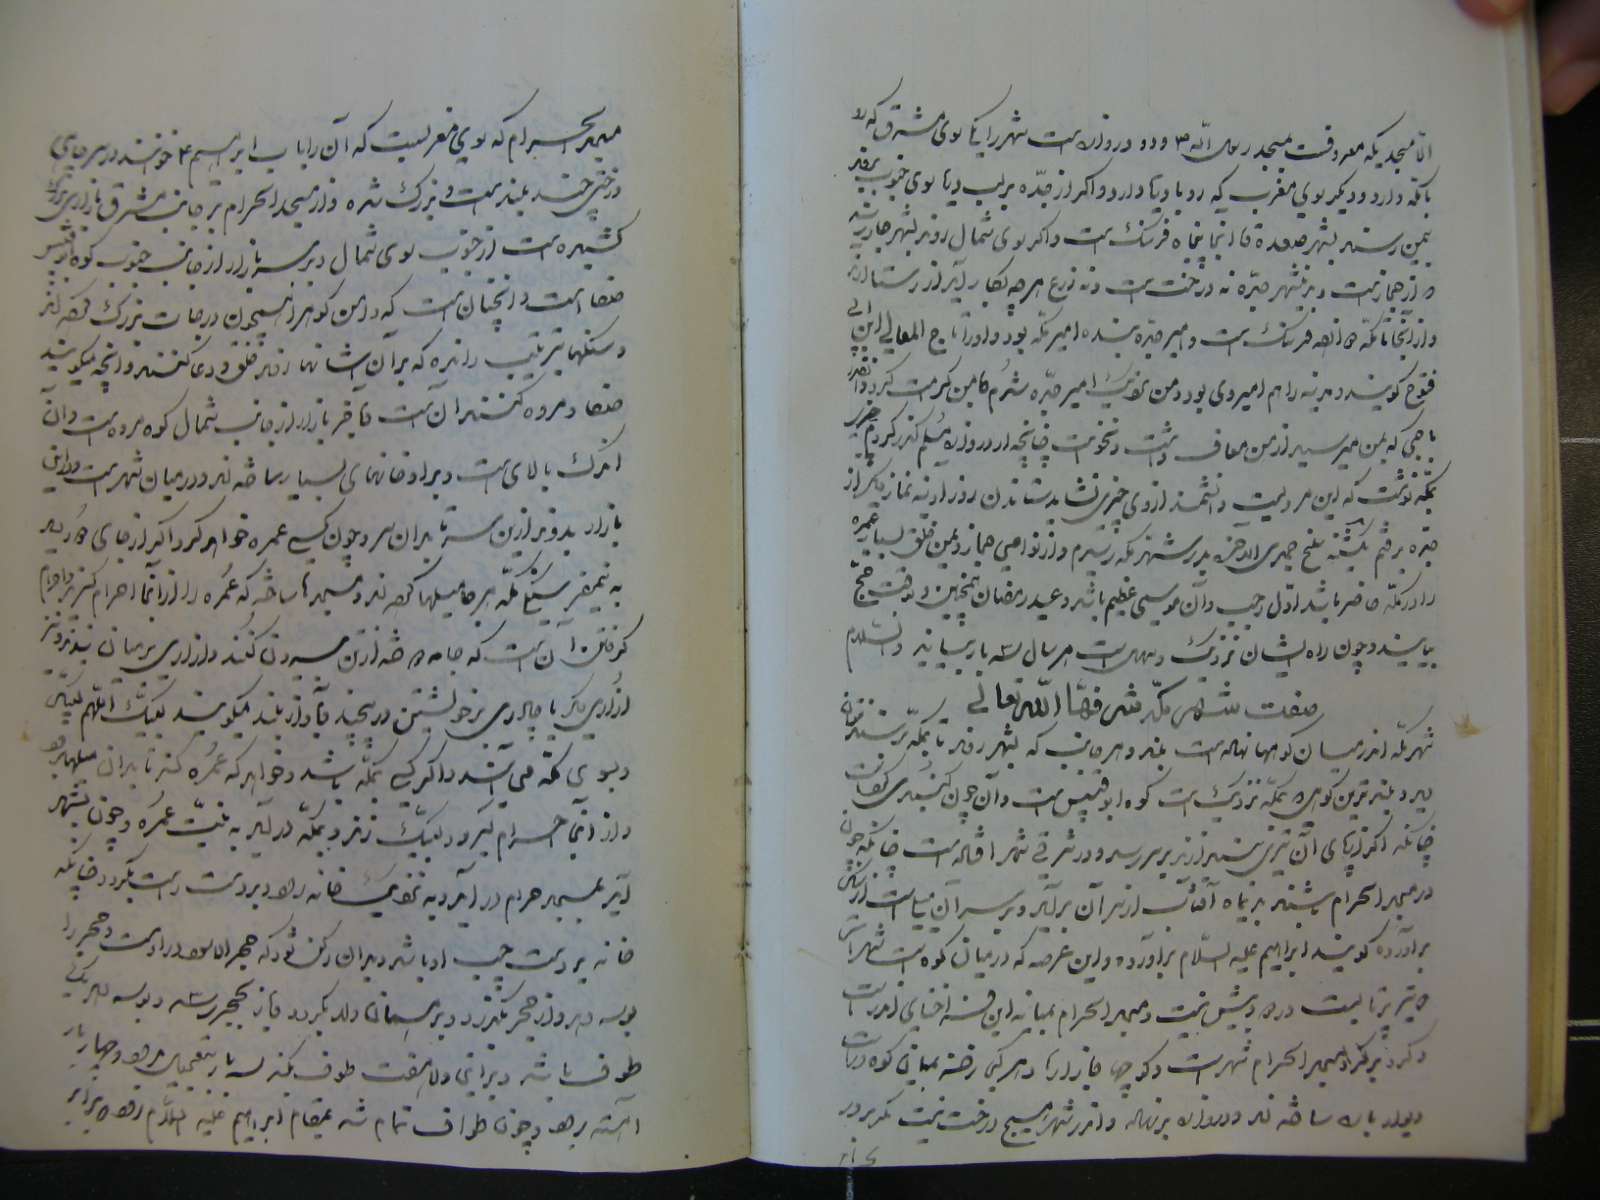 الا مسجدیکه معروفست بمسجد رسول الله ص و دو دروازه است شهر را یکی سوی مشرق که رو
با مکه دارد و دیگر سوی مغرب که رو با دریا دارد و اگر از جده بر لب دریا سوی جنوب بروند
بیمن رسند بشهر صعده و تا آنجا پنجاه فرسنگ است و اگر سوی شمال روند بشهر جار رسند
که از حجاز است و در شهر جده نه درخت است و نه زرع هرچه بکار آید از رستا آرند
و از آنجا تا مکه دوازده فرسنگ است و امیر جده بنده امیر مکه بود و او را تاج المعالی ابن ابی
فتوح گویند و مدینه را هم امیر وی بود و من نزدیک امیر جده شدم و با من کرامت کرد و آنقدر
باجی که بمن میرسید از من معاف داشت و نخواست چنانچه از دروازه مسلم گذر کردم چیزی
بمکه نوشت که این مردیست دانشمند از وی چیزی نشاید ستاندن روز آدینه نماز دیگر از
جده برفتم یکشنبه سلخ جمادی الاخره بدر شهر مکه رسیدم و از نواحی حجاز و یمن خلق بسیار عمره
را در مکه حاضر باشد اول رجب و آن موسمی عظیم باشد و عید رمضان همچنین و بوقت حج
بیایند و چون راه ایشان نزدیک و سهل است هر سال سه بار بیایند والسلام
صفت شهر مکه شرفها الله تعالی
شهر مکه اندر میان کوهها نهاده است بلند و هر جانب که بشهر روند تا بمکه نرسند نتوان
دید و بلندترین کوهی که بمکه نزدیک است کوه ابوقبیس است و آن چون گنبدی گرد است
چنانکه اگر از پای آن تیری بیندازند بر سر رسد و در شرقی شهر افتاده است چنانکه چون
در مسجد الحرام باشند بدیماه آفتاب از سر آن برآید و بر سر آن میلیست از سنگ
برآورده گویند ابراهیم علیه السلام برآورده و این عرصه که در میان کوه است شهر است
دو تیر پرتاب در دو بیش نیست و مسجد الحرام بمیانه این فراخنای اندر است
و گرد بر گرد مسجد الحرام شهر است و کوچها و بازارها و هر کجا رخنه بمیان کوه در است
دیوار باره ساخته اند و دروازه بر نهاده و اندر شهر هیچ درخت نیست مگر بر در
مسجد الحرام که سوی مغربیست که آن را باب ابراهیم ع خوانند بر سر چاهی
درختی چند بلند است و بزرگ شده و از مسجد الحرام بر جانب مشرق بازاری بزرگ
کشیده است از جنوب سوی شمال و بر سر بازار از جانب جنوب کوه ابوقبیس
صفا است و آنچنان است که دامن کوه را همچون درجات بزرگ کرده اند
و سنگها بترتیب رانده که بر آن آستانها روند خلق و دعا کنند و آنچه میگویند
صفا و مروه کنند آن است و بآخر بازار از جانب شمال کوه مروه است و آن
اندک بالای است و بر او خانهای بسیار ساخته اند و در میان شهر است و در این
بازار بدوند ازین سر تا بدان سر و چون کسی عمره خواهد کرد اگر از جای دور آید
به نیم فرسنگی مکه هر جا میلها کرده اند و مسجدها ساخته که عمره را از آنجا احرام گیرند و احرام
گرفتن آن است که جامه دوخته از تن بیرون کنند و ازاری بر میان بندند و
ازاری دیگر یا چادری بر خویشتن در پیچند و بآواز بلند میگویند لبیک اللهم لبیک
و سوی مکه می آیند و اگر کسی بمکه باشد و خواهد که عمره کند تا بدان میلها برود
و از آنجا احرام گیرد و لبیک زند و بمکه در آید به نیت عمره و چون بشهر
آید بمسجد حرام در آید و به نزدیک خانه رود و بر دست راست بگردد چنانکه
خانه بر دست چپ او باشد و بدان رکن شود که حجرالاسود در اوست و حجر را
بوسه دهد و از حجر بگذرد و بر همان ولا بگردد و باز بحجر رسد و بوسه دهد یک
طوف باشد و بر این ولا هفت طوف بکند سه بار بتعجیل بدود و چهار بار
آهسته برود و چون طواف تمام شد بمقام ابراهیم علیه السلام رود که برابر